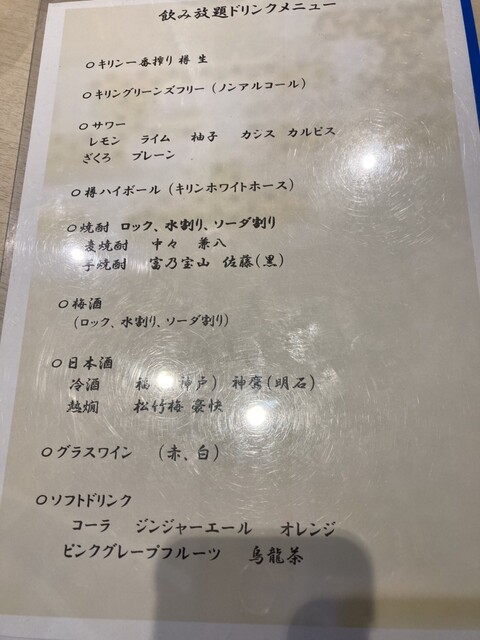 飲み放題ドリンクメニュー
○キリン一番搾り 樽 生
○キリングリーンズフリー（ノンアルコール）
○サワー
レモン ライム 柚子 カシス カルピス
ざくろ プレーン
○樽ハイボール（キリンホワイトホース）
○焼酎 ロック、水割り、ソーダ割り
麦焼酎 中々 兼八
芋焼酎 富乃宝山 佐藤（黒）
○梅酒
（ロック、水割り、ソーダ割り）
○日本酒
冷酒 神戸） 神鷹（明石）
熱燗 松竹梅 豪快
○グラスワイン （赤、白）
○ソフトドリンク
コーラ ジンジャーエール オレンジ
ピンクグレープフルーツ 烏龍茶